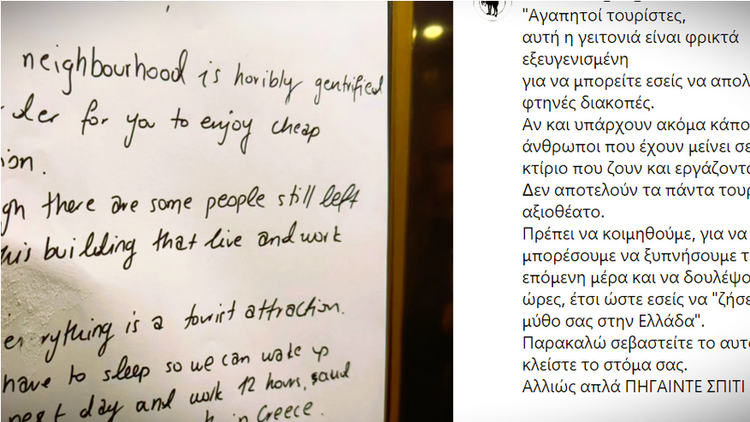 neighbourhood is horibly gentrified
for you to enjoy cheap
there are some people still left
building that live and work
is a tourist attraction.
have to sleep so we can wake up
day and work 12 hours,
in Greece.
"Αγαπητοί τουρίστες,
αυτή η γειτονιά είναι φρικτά
εξευγενισμένη
για να μπορείτε εσείς να
φτηνές διακοπές.
Αν και υπάρχουν ακόμα
άνθρωποι που έχουν μείνει
κτίριο που ζουν και
Δεν αποτελούν τα πάντα
αξιοθέατο.
Πρέπει να κοιμηθούμε, για να
μπορέσουμε να ξυπνήσουμε
επόμενη μέρα και να
ώρες, έτσι ώστε εσείς να
μύθο σας στην Ελλάδα".
Παρακαλώ σεβαστείτε το
κλείστε το στόμα σας.
Αλλιώς απλά ΠΗΓΑΙΝΤΕ ΣΠΙΤΙ